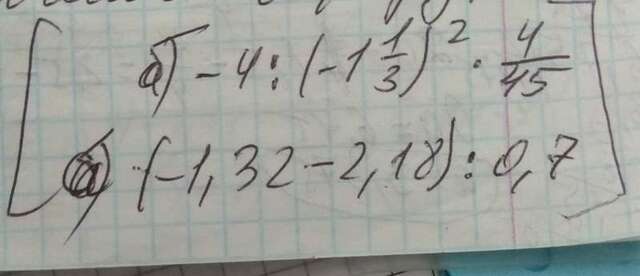 б) - 4 : (-1 1/3)² · 4/45
а) (-1,32 - 2,18) : 0,7